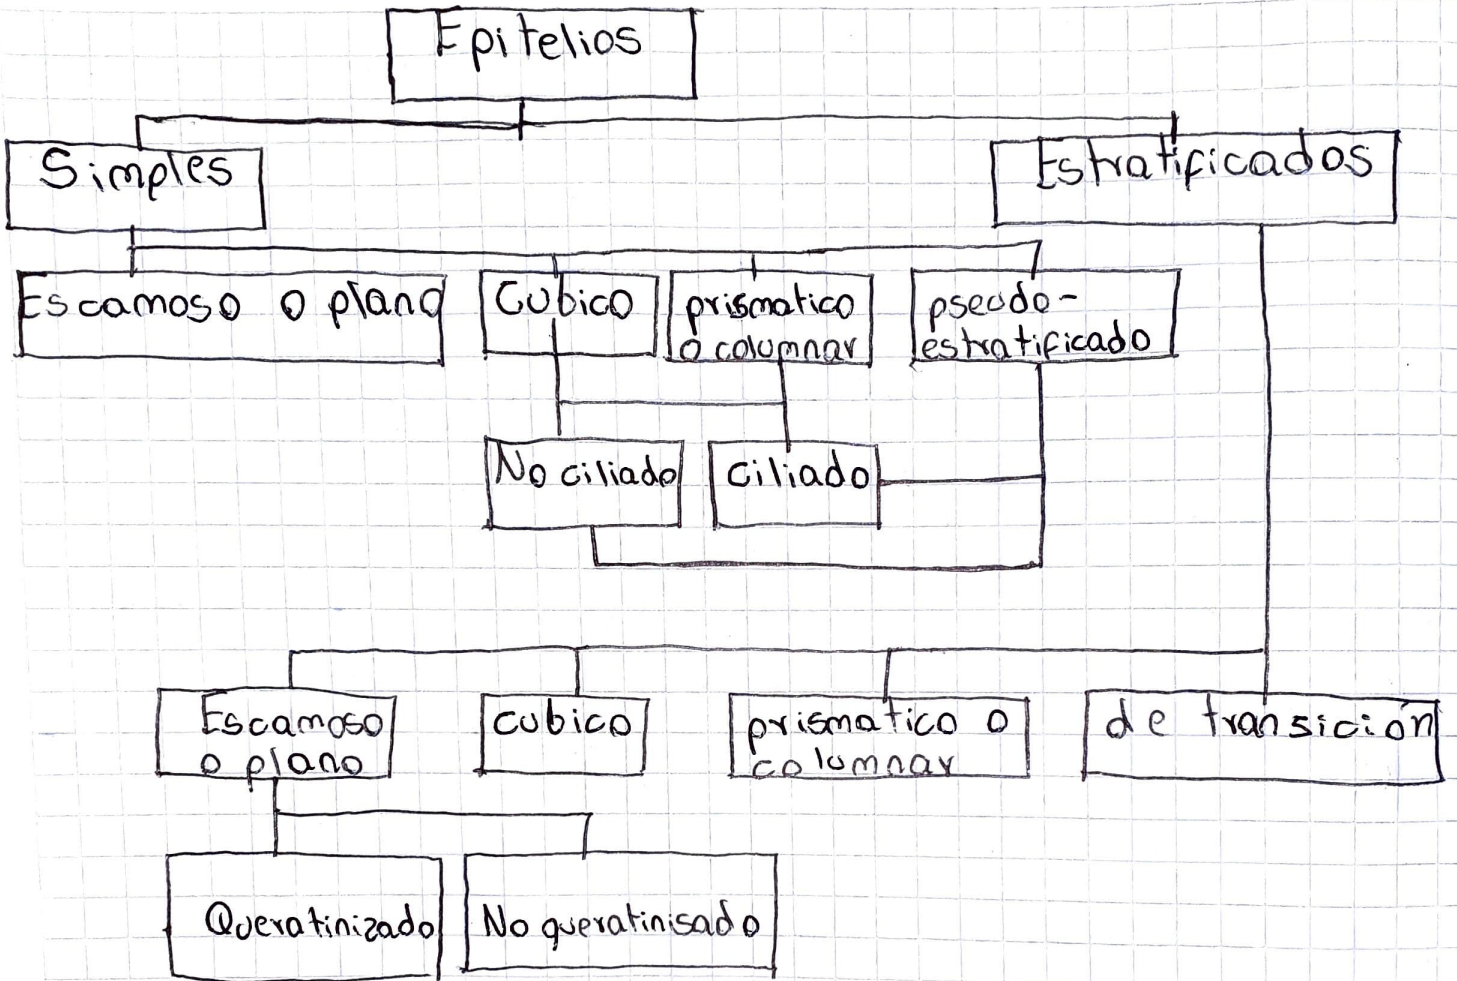 Epitelios
Simples
Estratificados
Escamoso o plano
Cubico
prismatico
o columnar
pseudo-
estratificado
No ciliado
ciliado
Escamoso
o plano
cubico
prismatico o
columnar
de transición
Queratinizado
No queratinisado